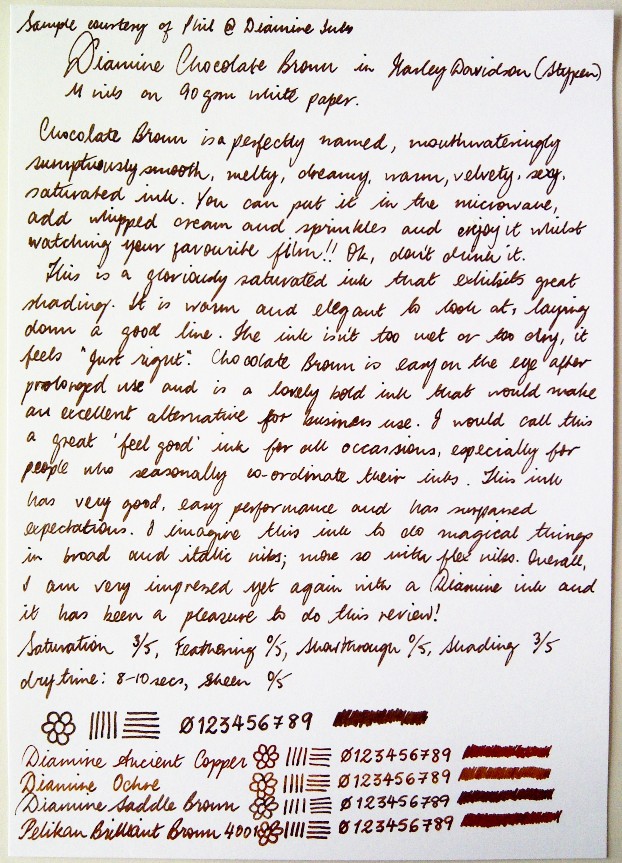 Sample courtesy of Phil @ Diamine Inks
Diamine Chocolate Brown in Harley Davidson (Stypen)
M nib on 90gsm white paper.
Chocolate Brown is a perfectly named, mouthwateringly
sumptuously smooth, melty, dreamy, warm, velvety, sexy,
saturated ink. You can put it in the microwave,
add whipped cream and sprinkles and enjoy it whilst
watching your favourite film!! Oh, don't drink it.
This is a gloriously saturated ink that exhibits great
shading. It is warm and elegant to look at, laying
down a good line. The ink isn't too wet or too dry, it
feels "Just right". Chocolate Brown is easy on the eye after
prolonged use and is a lovely bold ink that would make
an excellent alternative for business use. I would call this
a great 'feel good' ink for all occassions, especially for
people who seasonally co-ordinate their inks. This ink
has very good, easy performance and has surpassed
expectations. I imagine this ink to do magical things
in broad and italic nibs; more so with flex nibs. Overall,
I am very impressed yet again with a Diamine ink and
it has been a pleasure to do this review!
Saturation 3/5, Feathering 0/5, Showthrough 0/5, Shading 3/5
dry time: 8-10secs, Sheen 0/5
0123456789
Diamine Ancient Copper 0123456789
Diamine Ochre 0123456789
Diamine Saddle Brown 0123456789
Pelikan Brilliant Brown 4001 0123456789